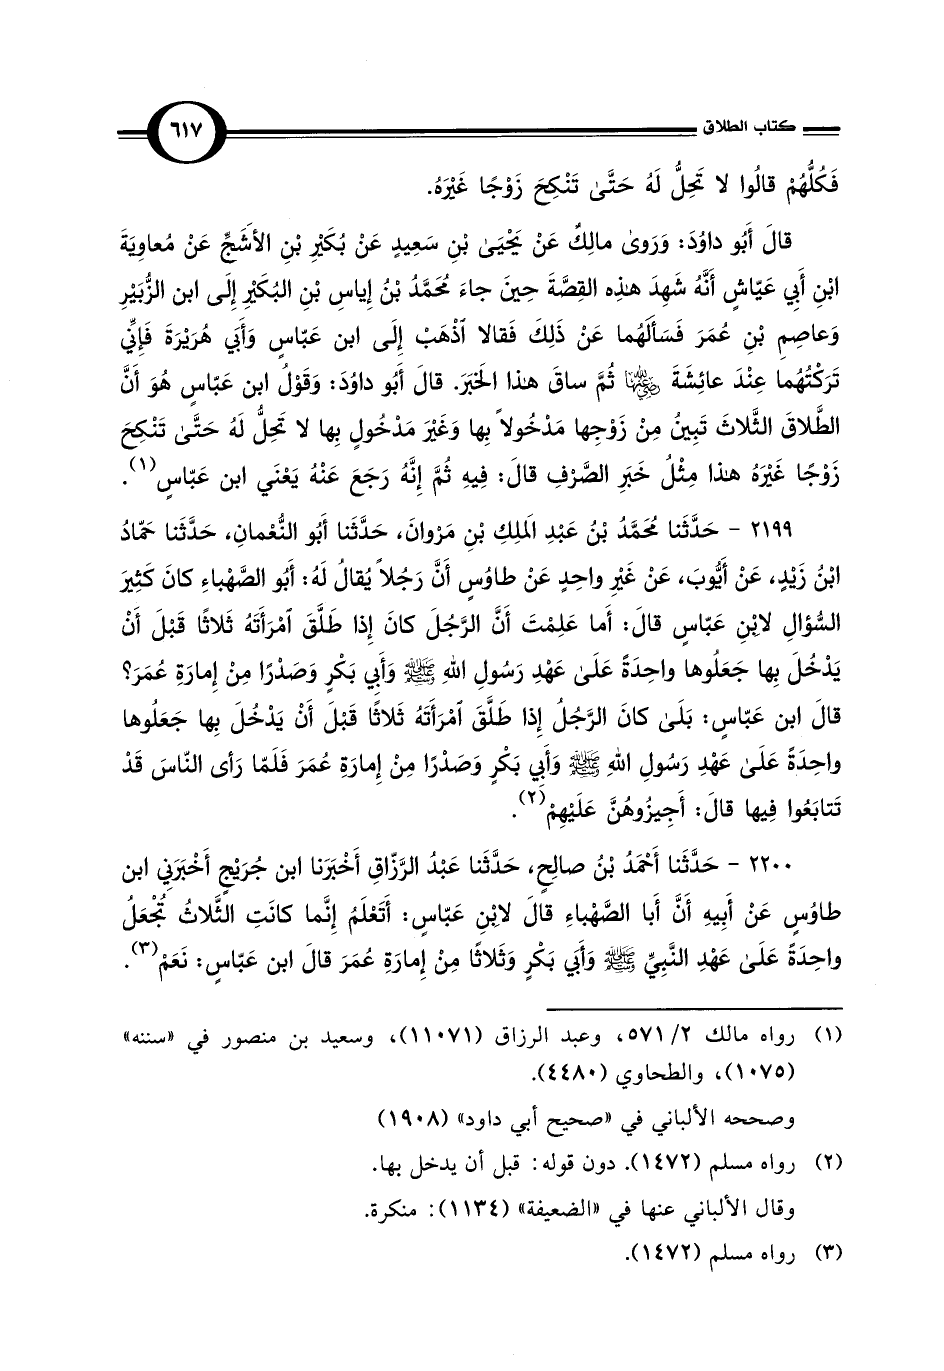 كتاب الطلاق
٦١٧
فَكُلُّهُمْ قالُوا لا تَحِلُّ لَهُ حَتَّىٰ تَنْكِحَ زَوْجًا غَيْرَهُ.
قالَ أَبُو داوُدَ: وَرَوىٰ مالِكٌ عَنْ يَحْيَىٰ بْنِ سَعِيدٍ عَنْ بُكَيْرِ بْنِ الأشَجِّ عَنْ مُعاوِيَةَ
ابْنِ أَبِي عَيّاشٍ أَنَّهُ شَهِدَ هذِه القِصَّةَ حِينَ جاءَ مُحَمَّدُ بْنُ إِياسِ بْنِ البُكَيْرِ إِلَى ابن الزُّبَيْرِ
وَعاصِمِ بْنِ عُمَرَ فَسَأَلَهُما عَنْ ذَلِكَ فَقالا ٱذْهَبْ إِلَى ابن عَبّاسٍ وَأَبِي هُرَيْرَةَ فَإِنِّي
تَرَكْتُهُما عِنْدَ عائِشَةَ رضي الله عنها ثُمَّ ساقَ هذا الخَبَرَ. قالَ أَبُو داوُدَ: وَقَوْلُ ابن عَبّاسٍ هُوَ أَنَّ
الطَّلاقَ الثَّلاثَ تَبِينُ مِنْ زَوْجِها مَدْخُولاً بِها وَغَيْرَ مَدْخُولٍ بِها لا تَحِلُّ لَهُ حَتَّىٰ تَنْكِحَ
زَوْجًا غَيْرَهُ هذا مِثْلُ خَبَرِ الصَّرْفِ قالَ: فِيهِ ثُمَّ إِنَّهُ رَجَعَ عَنْهُ يَعْنَي ابن عَبّاسٍ(١).
٢١٩٩ - حَدَّثَنا مُحَمَّدُ بْنُ عَبْدِ المَلِكِ بْنِ مَرْوانَ، حَدَّثَنا أَبُو النُّعْمانِ، حَدَّثَنا حَمّادُ
ابْنُ زَيْدٍ، عَنْ أَيُّوبَ، عَنْ غَيْرِ واحِدٍ عَنْ طاوُسٍ أَنَّ رَجُلاً يُقالُ لَهُ: أَبُو الصَّهْباءِ كانَ كَثِيرَ
السُّؤالِ لابْنِ عَبّاسٍ قالَ: أَما عَلِمْتَ أَنَّ الرَّجُلَ كانَ إِذا طَلَّقَ ٱمْرَأَتَهُ ثَلاثًا قَبْلَ أَنْ
يَدْخُلَ بِها جَعَلُوها واحِدَةً عَلَىٰ عَهْدِ رَسُولِ اللهِ ﷺ وَأَبِي بَكْرٍ وَصَدْرًا مِنْ إِمارَةِ عُمَرَ؟
قالَ ابن عَبّاسٍ: بَلَىٰ كانَ الرَّجُلُ إِذا طَلَّقَ ٱمْرَأَتَهُ ثَلاثًا قَبْلَ أَنْ يَدْخُلَ بِها جَعَلُوها
واحِدَةً عَلَىٰ عَهْدِ رَسُولِ اللهِ ﷺ وَأَبِي بَكْرٍ وَصَدْرًا مِنْ إِمارَةِ عُمَرَ فَلَمّا رَأى النّاسَ قَدْ
تَتابَعُوا فِيها قالَ: أَجِيزُوهُنَّ عَلَيْهِمْ(٢).
٢٢٠٠ - حَدَّثَنا أَحْمَدُ بْنُ صالِحٍ، حَدَّثَنا عَبْدُ الرَّزّاقِ أَخْبَرَنا ابن جُرَيْجٍ أَخْبَرَنِي ابن
طاوُسٍ عَنْ أَبِيهِ أَنَّ أَبا الصَّهْباءِ قالَ لابْنِ عَبّاسٍ: أَتَعْلَمُ إِنَّما كانَتِ الثَّلاثُ تُجْعَلُ
واحِدَةً عَلَىٰ عَهْدِ النَّبِيِّ ﷺ وَأَبِي بَكْرٍ وَثَلاثًا مِنْ إِمارَةِ عُمَرَ قالَ ابن عَبّاسٍ: نَعَمْ(٣).
(١) رواه مالك ٢/ ٥٧١، وعبد الرزاق (١١٠٧١)، وسعيد بن منصور في «سننه»
(١٠٧٥)، والطحاوي (٤٤٨٠).
وصححه الألباني في «صحيح أبي داود» (١٩٠٨)
(٢) رواه مسلم (١٤٧٢). دون قوله: قبل أن يدخل بها.
وقال الألباني عنها في «الضعيفة» (١١٣٤): منكرة.
(٣) رواه مسلم (١٤٧٢).